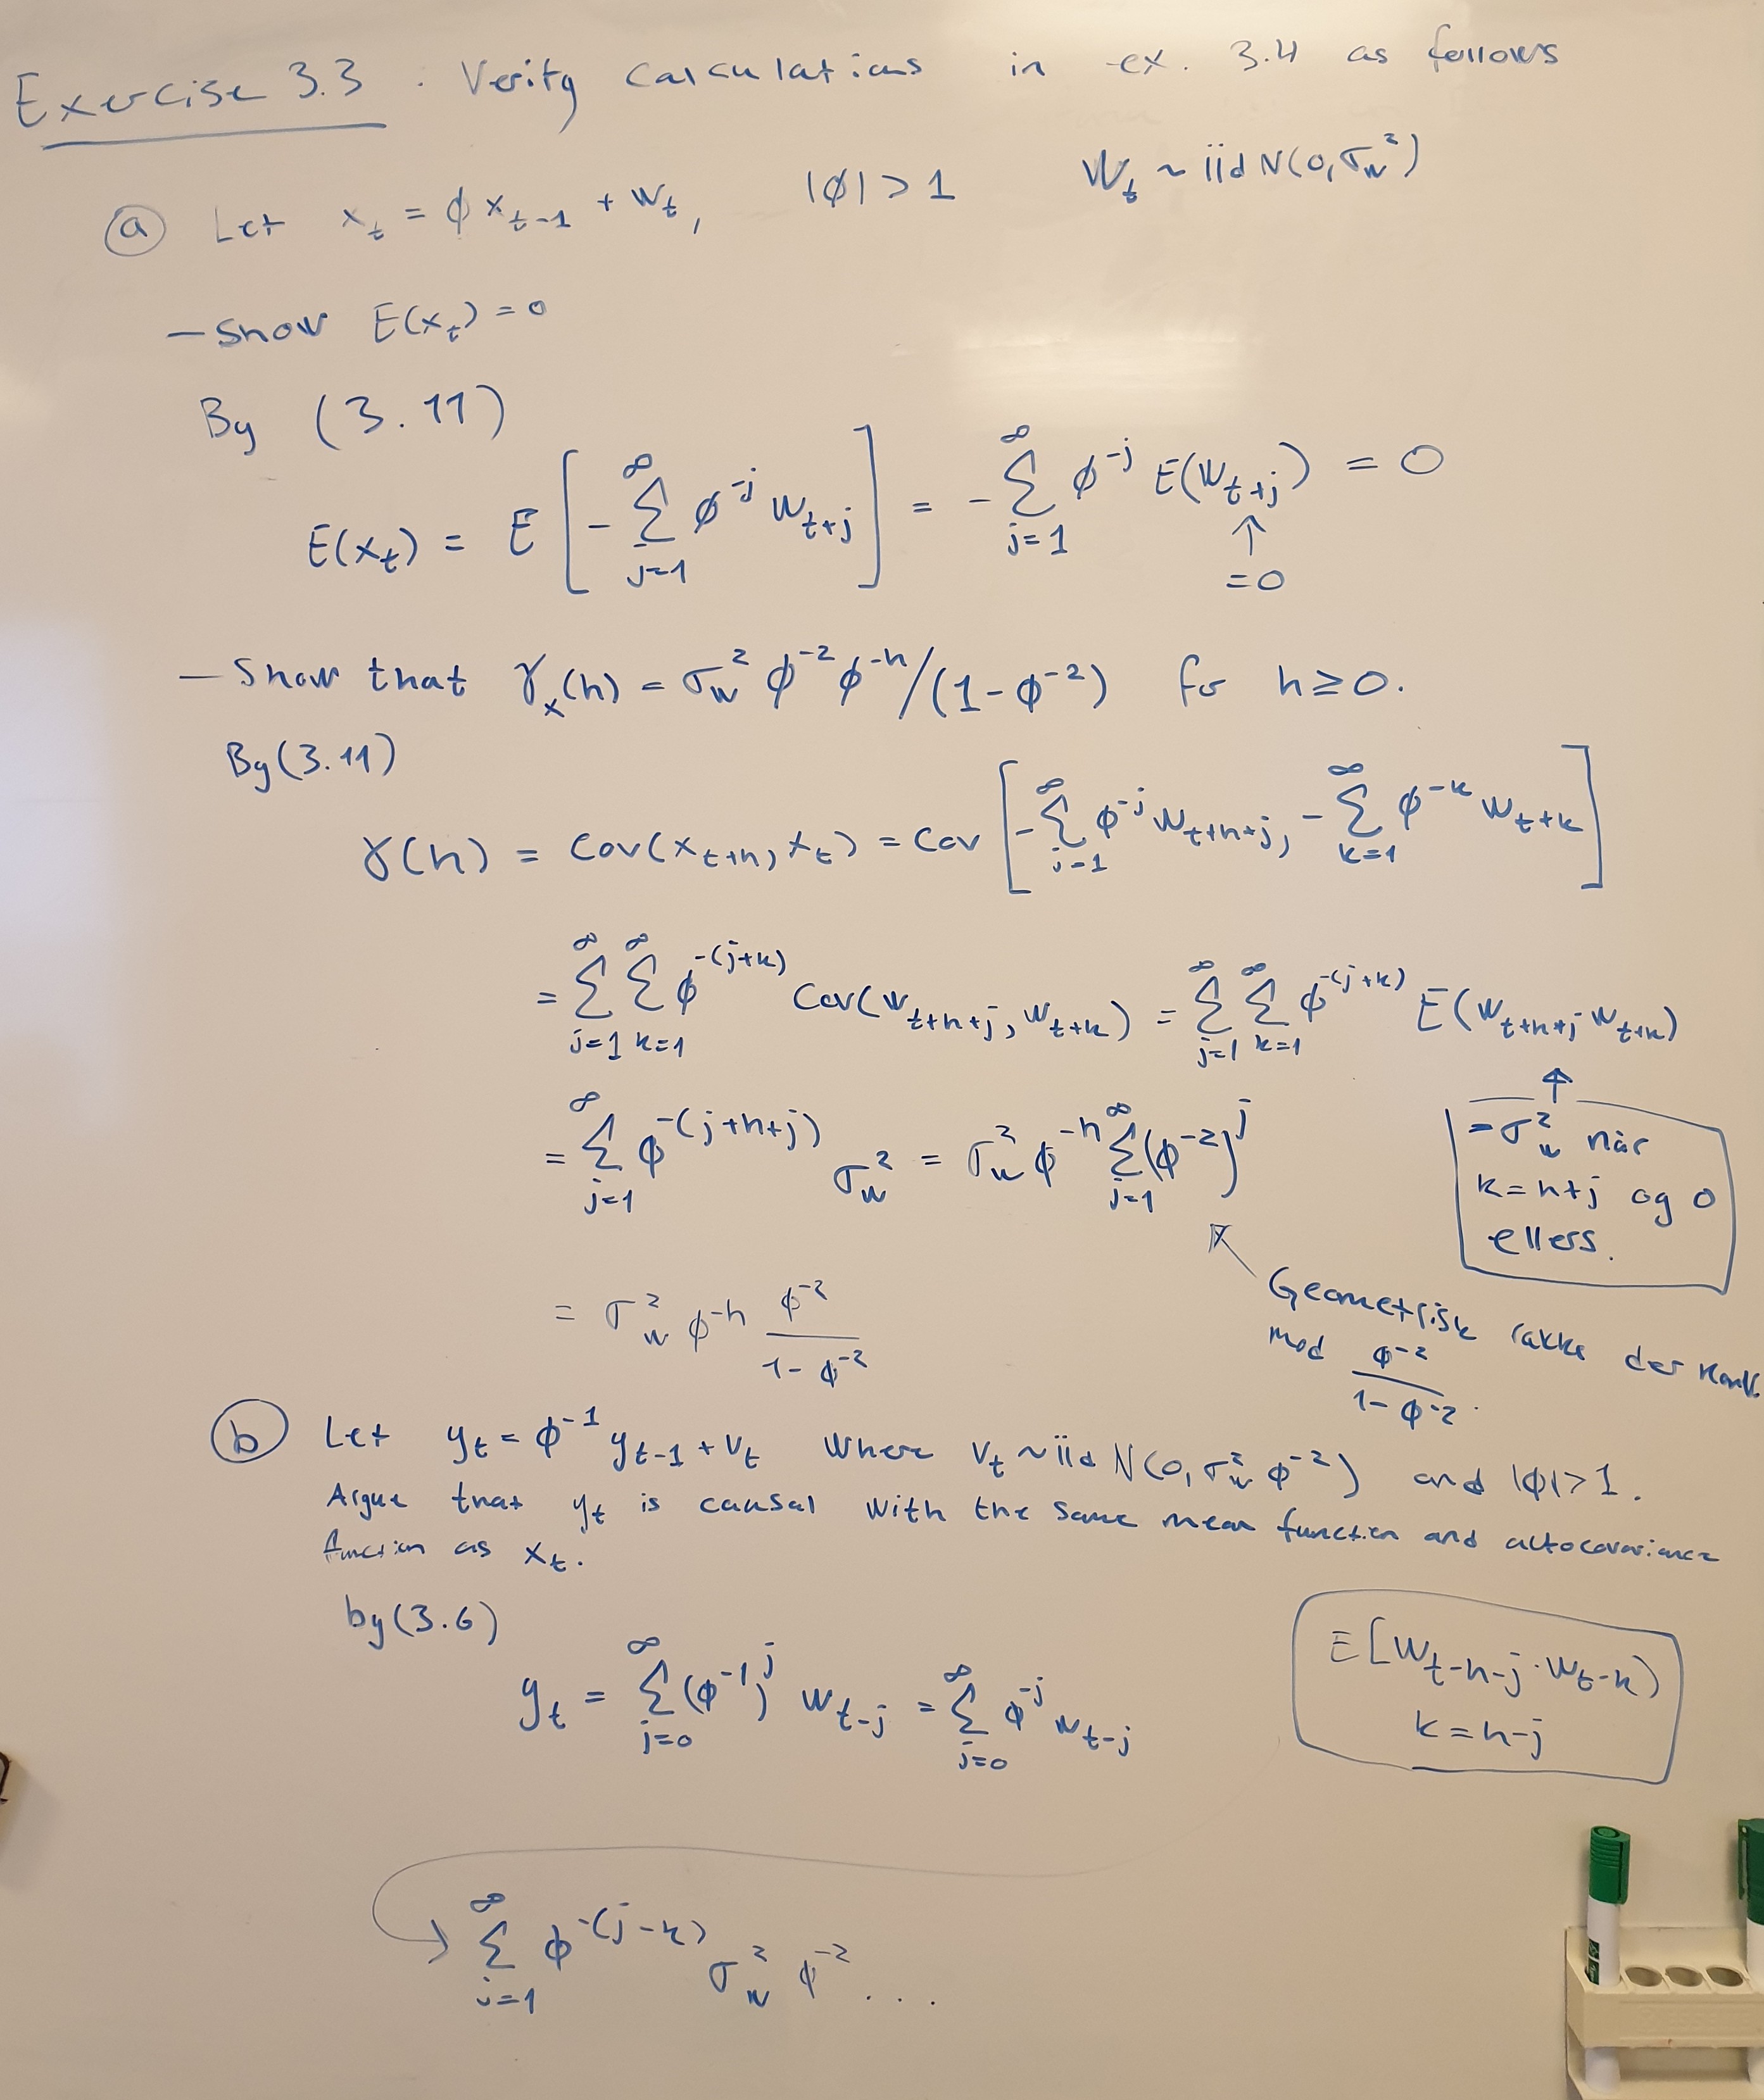 Exercise 3.3 : Verify calculations in ex. 3.4 as follows
(a) Let x_t = φ x_{t-1} + w_t, |φ| > 1 W_t ~ iid N(0, σ_w^2)
— Show E(x_t) = 0
By (3.11)
E(x_t) = E [ - ∑_{j=1}^∞ φ^{-j} w_{t+j} ] = - ∑_{j=1}^∞ φ^{-j} E(w_{t+j}) = 0
↑
= 0
— Show that γ_x(h) = σ_w^2 φ^{-2} φ^{-h} / (1-φ^{-2}) for h ≥ 0.
By (3.11)
γ(h) = Cov(x_{t+h}, x_t) = Cov [ - ∑_{j=1}^∞ φ^{-j} w_{t+h+j}, - ∑_{k=1}^∞ φ^{-k} w_{t+k} ]
= ∑_{j=1}^∞ ∑_{k=1}^∞ φ^{-(j+k)} Cov(w_{t+h+j}, w_{t+k}) = ∑_{j=1}^∞ ∑_{k=1}^∞ φ^{-(j+k)} E(w_{t+h+j} w_{t+k})
↑
= σ_w^2 når
k = h+j og 0
ellers.
= ∑_{j=1}^∞ φ^{-(j+h+j)} σ_w^2 = σ_w^2 φ^{-h} ∑_{j=1}^∞ (φ^{-2})^j
Geometrisk række der konv.
mod φ^{-2} / (1-φ^{-2}).
= σ_w^2 φ^{-h} φ^{-2} / (1-φ^{-2})
(b) Let y_t = φ^{-1} y_{t-1} + v_t where v_t ~ iid N(0, σ_w^2 φ^{-2}) and |φ| > 1.
Argue that y_t is causal with the same mean function and autocovariance
function as x_t.
by (3.6)
y_t = ∑_{j=0}^∞ (φ^{-1})^j w_{t-j} = ∑_{j=0}^∞ φ^{-j} w_{t-j}
E[w_{t-h-j} · w_{t-k})
k = h-j
∑_{j=1}^∞ φ^{-(j-k)} σ_w^2 φ^{-2} ...